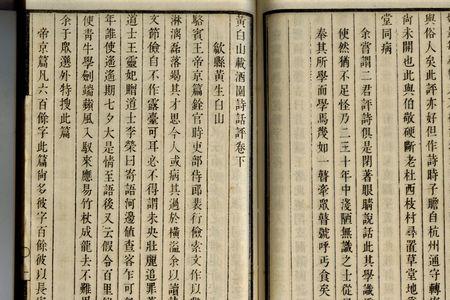 與俗人矣此評亦好但作詩時子瞻自杭州通守轉
尚未開也此與伯敬硬斷老杜西枝村尋置草堂地
堂同病
余嘗謂二君評詩俱是閉著眼睛說話此其學識
使然猶不足怪乃二三十年中淺陋無識之士從
奉其所學而學焉幾如一瞽牽眾瞽號呼丐食矣
黃白山載酒園詩話評卷下
歙縣黃生白山
駱賓王帝京篇銓官時吏部侍郎裴行儉索文作以
淋漓磊落竭其才思今人或病其過於橫溢余以讀
文節儉自不作露臺可耳必不得謂未央壯麗追罪
道士王靈妃贈道士李榮曰寄語河邊值查客乍可
年誰使遥遥期七夕大是情至語後又云假令百里
使青牛學劍端蘋風入馭來應易竹杖成龍去不難
余于眾選外特搜此篇
帝京篇凡六百餘字此篇尚多彼字百餘彼以長